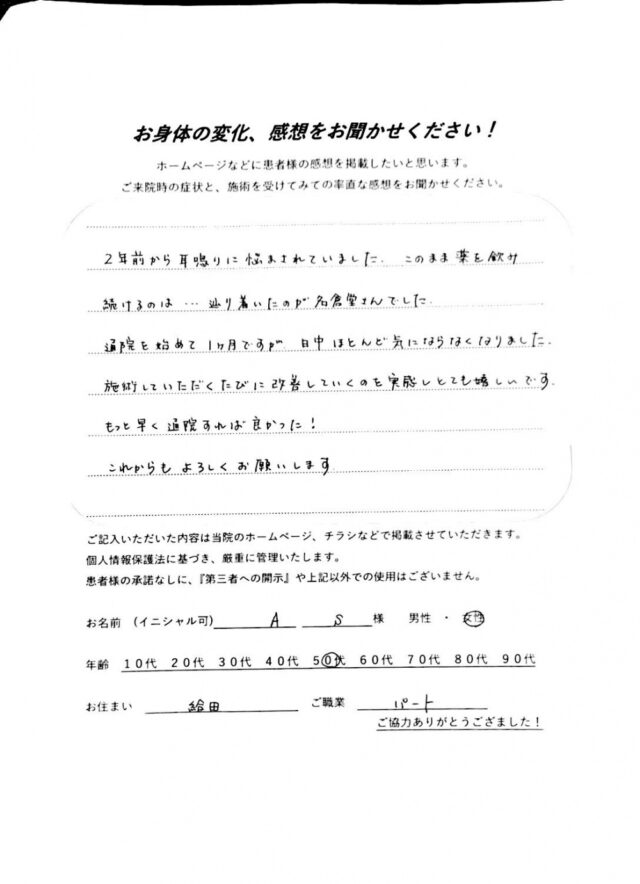 お身体の変化、感想をお聞かせください！
ホームページなどに患者様の感想を掲載したいと思います。
ご来院時の症状と、施術を受けてみての率直な感想をお聞かせください。
2年前から耳鳴りに悩まされていました. このまま薬を飲み
続けるのは… 辿り着いたのが名倉堂さんでした.
通院を始めて1ヶ月ですが 日中ほとんど気にならなくなりました.
施術していただくたびに改善していくのを実感しとても嬉しいです.
もっと早く通院すれば良かった！
これからもよろしくお願いします
ご記入いただいた内容は当院のホームページ、チラシなどで掲載させていただきます。
個人情報保護法に基づき、厳重に管理いたします。
患者様の承諾なしに、『第三者への開示』や上記以外での使用はございません。
お名前 (イニシャル可) A S 様 男性 ・ 女性
年齢 10代 20代 30代 40代 50代 60代 70代 80代 90代
お住まい 給田 ご職業 パート
ご協力ありがとうござました！